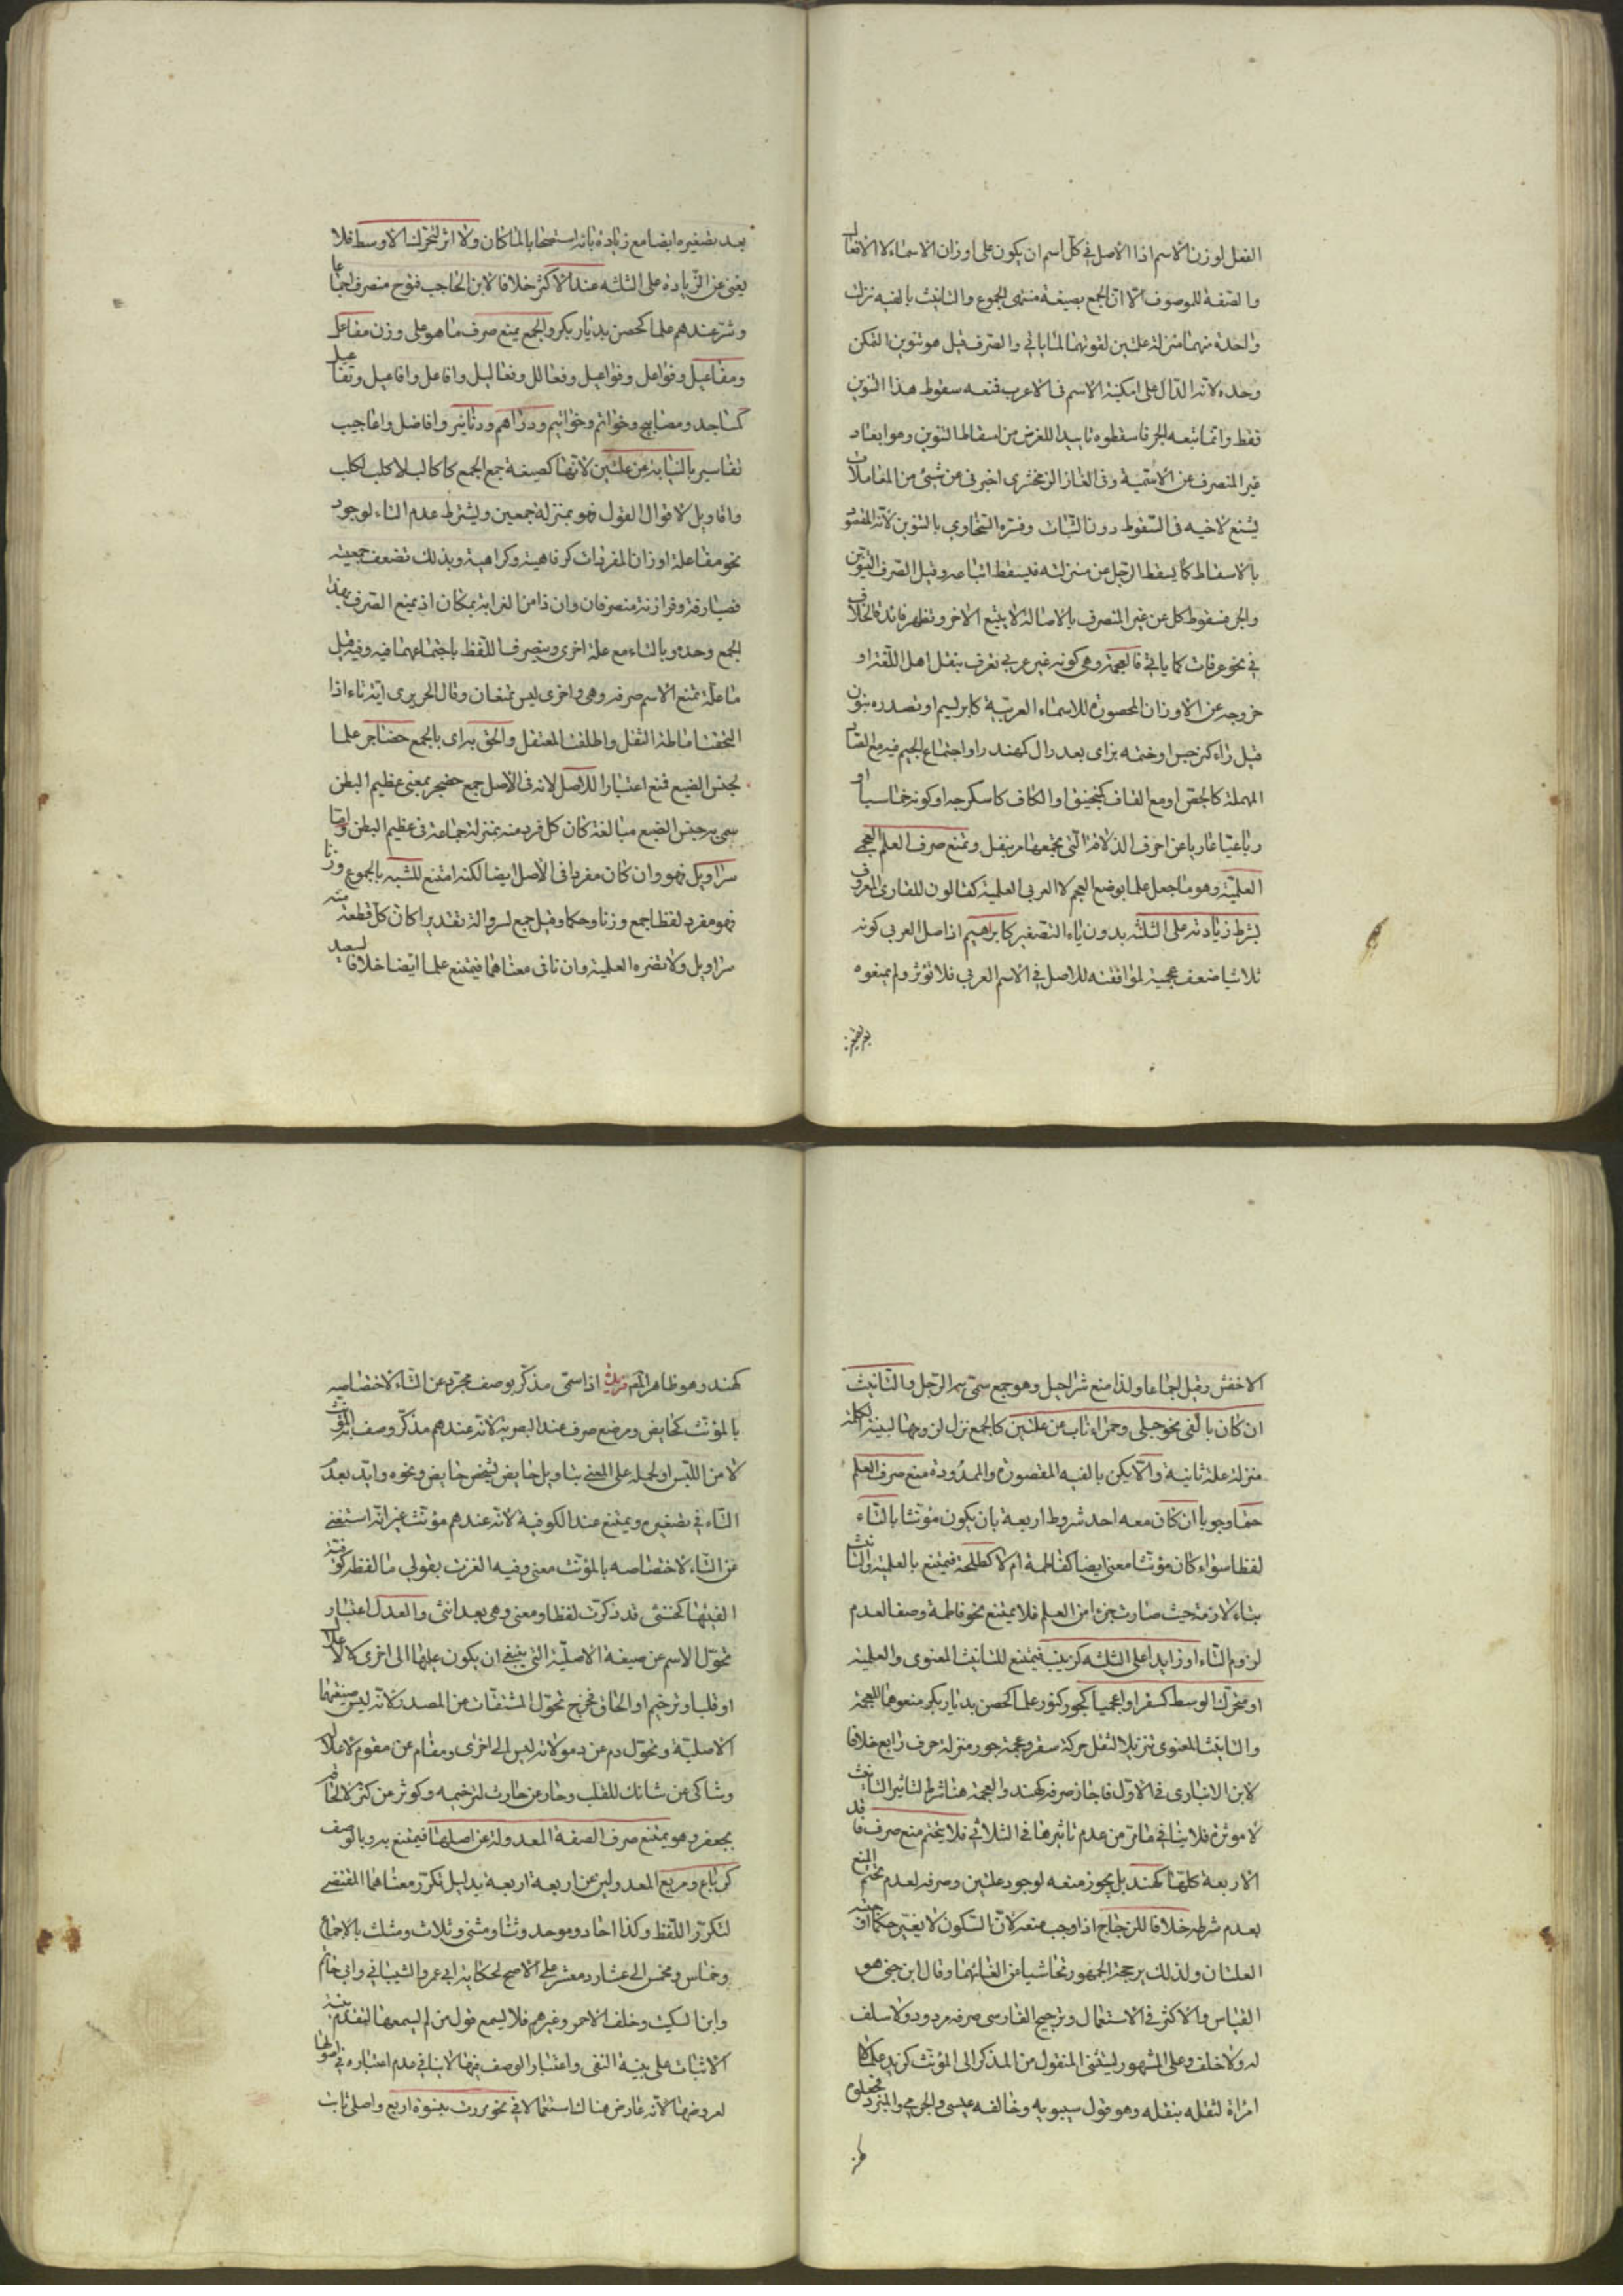 الفعل لوزن الاسم اذا الاصل في كل اسم ان يكون على اوزان الاسماء لا الافعال
والصفة للموصوف الا ان الجمع بصيغة منتهى الجموع والتانيث بالفيه نزلت
واحدة منهما منزلة علتين لقوتهما لما ياتي والصرف قيل هو تنوين التمكن
وحده لانه الدال على امكنية الاسم في الاعرب فمنعه سقوط هذا التنوين
فقط وانما تبعه الجر فاسقطوه تاييدا للغرض من اسقاط التنوين وهو ابعاد
غير المنصرف عن الاسمية وفي الغاز الزمخشري اخبرني عن شيئ من المعاملات
يتبع لاخيه في السقوط دون الثبات وفسره السخاوي بالتنوين لانه المقصود
بالاسقاط كما يسقط الرجل عن منزلته فيسقط اتباعه وقيل الصرف التنوين
والجر فسقوط كل عن غير المنصرف بالاصالة لا يتبع الاخر وتظهر فائدة الخلاف
في نحو عرفات كما ياتي فالعجمة وهي كونه غير عربي تعرف بنقل اهل اللغة او
خروجه عن الاوزان المحصورة للاسماء العربية كابرليسم او تصدره بنون
قبل راء كنرجس او ختمه بزاى بعد دال كمهندز او اجتماع الجيم فيه مع الصاد
المهملة كالجص او مع القاف كمنجنيق او الكاف كاسكرجه او كونه خماسيا او
رباعيا عاريا عن احرف الذلاقة التي يجمعها مر بنفل وتمنع صرف العلم العجمي
العلمية وهو ما جعل علما بوضع العجم لا العربي العلمية كقالون للقارى المعروف
بشرط زيادته على الثلثه بدون ياء التصغير كابراهيم اذ اصل العربي كونه
ثلاثيا ضعف عجميته لموافقته للاصل في الاسم العربي فلا تؤثر ولم يمنعوه
بعد تصغيره
بعد تصغيره ايضا مع زيادة يائه استصحابا لما كان ولا اثر لتحرك الاوسط فلا
يغني عن الزيادة على الثلثه عند الاكثر خلافا لابن الحاجب فنوح منصرف اجماعا
وشتر عندهم علما كحصن بديار بكر والجمع يمنع صرف ما هو على وزن مفاعل
ومفاعيل وفواعل وفواعيل وفعالل وفعاليل وافاعل وافاعيل وتفاعيل
كمساجد ومصابيح وخواتم وخواتيم ودراهم ودنانير وافاضل واعاجيب
تفاسير بالنيابة عن علتين لانها كصيغة جمع الجمع كاكالب لاكلب لكلب
واقاويل لاقوال لقول فهو بمنزلة جمعين ويشترط عدم التاء لوجود
نحو مفاعلة اوزان المفردات كرفاهية وكراهية وبذلك تضعف جمعيته
فصيارفة وفرازنة منصرفان وان ذا من الغرابة بمكان اذ يمنع الصرف بهذا
الجمع وحده وبالتاء مع علة اخرى وينصرف اللفظ باجتماعهما فيه وفيه قيل
ما علة تمنع الاسم صرفه وهي واخرى ليس تمنعان وقال الحريرى اية تاء اذا
التحقت اماطة الثقل واطلقت المعتقل والحق براى بالجمع حضاجر علما
لجنس الضبع فمنع اعتبارا للاصل لانه في الاصل جمع حضجر بمعنى عظيم البطن
سمى به جنس الضبع مبالغة كان كل فرد منه بمنزلة جماعة في عظيم البطن واما
سراويل فهو وان كان مفردا في الاصل ايضا لكنه امتنع للشبه بالجموع وزنا
فهو مفرد لفظا جمع وزنا وحكما وقيل جمع لسروالة تقديرا كان كل قطعة منه
سراويل ولا تضره العلمية وان نافى معناهما فيمتنع علما ايضا خلافا لسعيد
الاخفش وقيل اجماعا ولذا منع شراحيل وهو جمع سمى به الرجل والتانيث
ان كان بالفي نحو حبلى وحمراء ناب عن علتين كالجمع نزل لزومها لبنية الكلمة
منزلة علة ثانية والا يكن بالفيه المقصورة والممدودة منع صرف العلم
حتما وجوبا ان كان معه احد شروط اربعة بان يكون مؤنثا بالتاء
لفظا سواء كان مؤنثا معنى ايضا كفاطمة ام لا كطلحة فيمتنع بالعلمية والتانيث
بتاء لازمة حيث صارت جزءا من العلم فلا يمتنع نحو فاطمة وصفا لعدم
لزوم التاء او زايدا على الثلثه كزينب فيمتنع للتانيث المعنوى والعلمية
او متحرك الوسط كسقر او اعجميا كجور كنور علما لحصن بديار بكر منعوها للعجمة
والتانيث المعنوى تنزيلا لثقل حركة سقر وعجمة جور منزلة حرف رابع خلافا
لابن الانبارى في الاول فاجاز صرفه كهند والعجمة هنا شرط لتاثير التانيث
لا موثرة فلا ينافي ما مر من عدم تاثيرها في الثلاثي فلا يتحتم منع صرف فاقد
الاربعة كلها كهند بل يجوز منعه لوجود علتين وصرفه لعدم تحتم المنع
بعدم شرطه خلافا للزجاج اذ اوجب منعه لان السكون لا يغير حكما اوجبته
العلتان ولذلك يرجحه الجمهور تحاشيا عن الغائهما وقال ابن جني هو
القياس والاكثر في الاستعمال وترجيح الفارسي صرفه مردود ولا سلف
له ولا خلف وعلى المشهور يستثنى المنقول من المذكر الى المؤنث كزيد علما لا
امراة لثقله بنقله وهو قول سيبويه وخالفه عيسى والجرمي والمبرد فجعلوه
كهند
كهند وهو ظاهر اتم فريدة اذا سمى مذكر بوصف مجرد عن التاء لاختصاصه
بالمؤنث كحايض ومرضع صرف عند البصرية لانه عندهم مذكر وصف به المؤنث
لا من اللبس او لحمله على المعنى بتاويل حايض لشخص حايض ونحوه وايد بعد
التاء في تصغيره ويمتنع عند الكوفية لانه عندهم مؤنث غير انه استغنى
عن التاء لاختصاصه بالمؤنث معنى وفيه الغزت بقولي ما لفظه كوفية
الفيتها كخنثى قد ذكرت لفظا ومعنى وهي بعد انثى والعدل اعتبار
تحول الاسم عن صيغة الاصلية التي ينبغي ان يكون عليها الى اخرى كالاعلال
او قلب او ترخيم او الحاق فخرج تحول المشتقات من المصدر لانه ليس صيغتهما
الاصلية وتحول دم عن دمو لانه ليس الى اخرى ومقام عن مقوم لاعلاله
وشاكي من شائك للقلب وحار عن حارث لترخيمه وكوثر من كثر لالحاقه
بجعفر وهو يمتنع صرف الصفة المعدولة عن اصلها فيمتنع به وبالوصف
كرباع ومربع المعدولين عن اربعة اربعة بدليل تكرر معناهما المقتضى
لتكرر اللفظ وكذا احاد وموحد وثنا ومثنى وثلاث ومثلث بالاجماع
وخماس ومخمس الى عشار ومعشر على الاصح لحكاية ابي عمرو الشيباني وابي حاتم
وابن السكيت وخلف الاحمر وغيرهم فلا يسمع قول من لم يسمعها لتقدم بينة
الاثبات على بينة النفي واعتبار الوصف فيها لا ينافي عدم اعتباره في اصولها
لعروضها لانه عارض هنالك استعمالا في نحو مررت بنسوة اربع واصلي ثابت